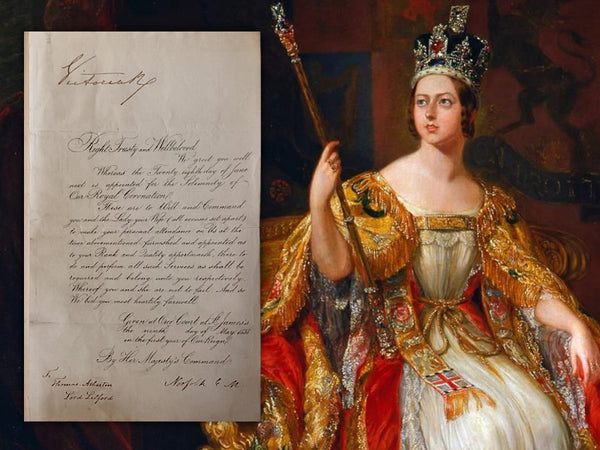 Victoria R
Right Trusty and Wellbeloved
We greet you well
Whereas the Twenty eighth day of June
next is appointed for the Solemnity of
Our Royal Coronation
These are to Will and Command
you and the Lady your Wife (all excuses set apart)
to make your personal attendance on Us at the
time abovementioned furnished and appointed as
to your Rank and Quality appertaineth, there to
do and perform all such Services as shall be
required and belong unto you respectively
Whereof you and she are not to fail. And so
We bid you most heartily farewell
Given at Our Court at St James's
the ninth day of May 1838
in the first year of Our Reign
By Her Majesty's Command
To
Thomas Atherton
Lord Lilford
Norfolk E M